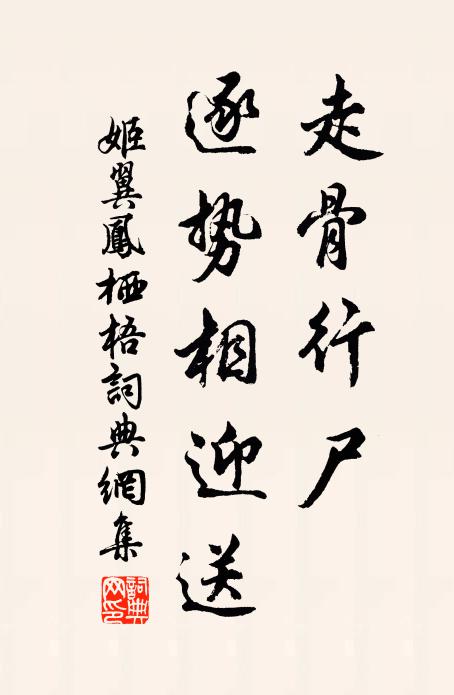 走骨行尸
逐势相迎送
姬翼鳳栖梧詞典網集
詞典网印